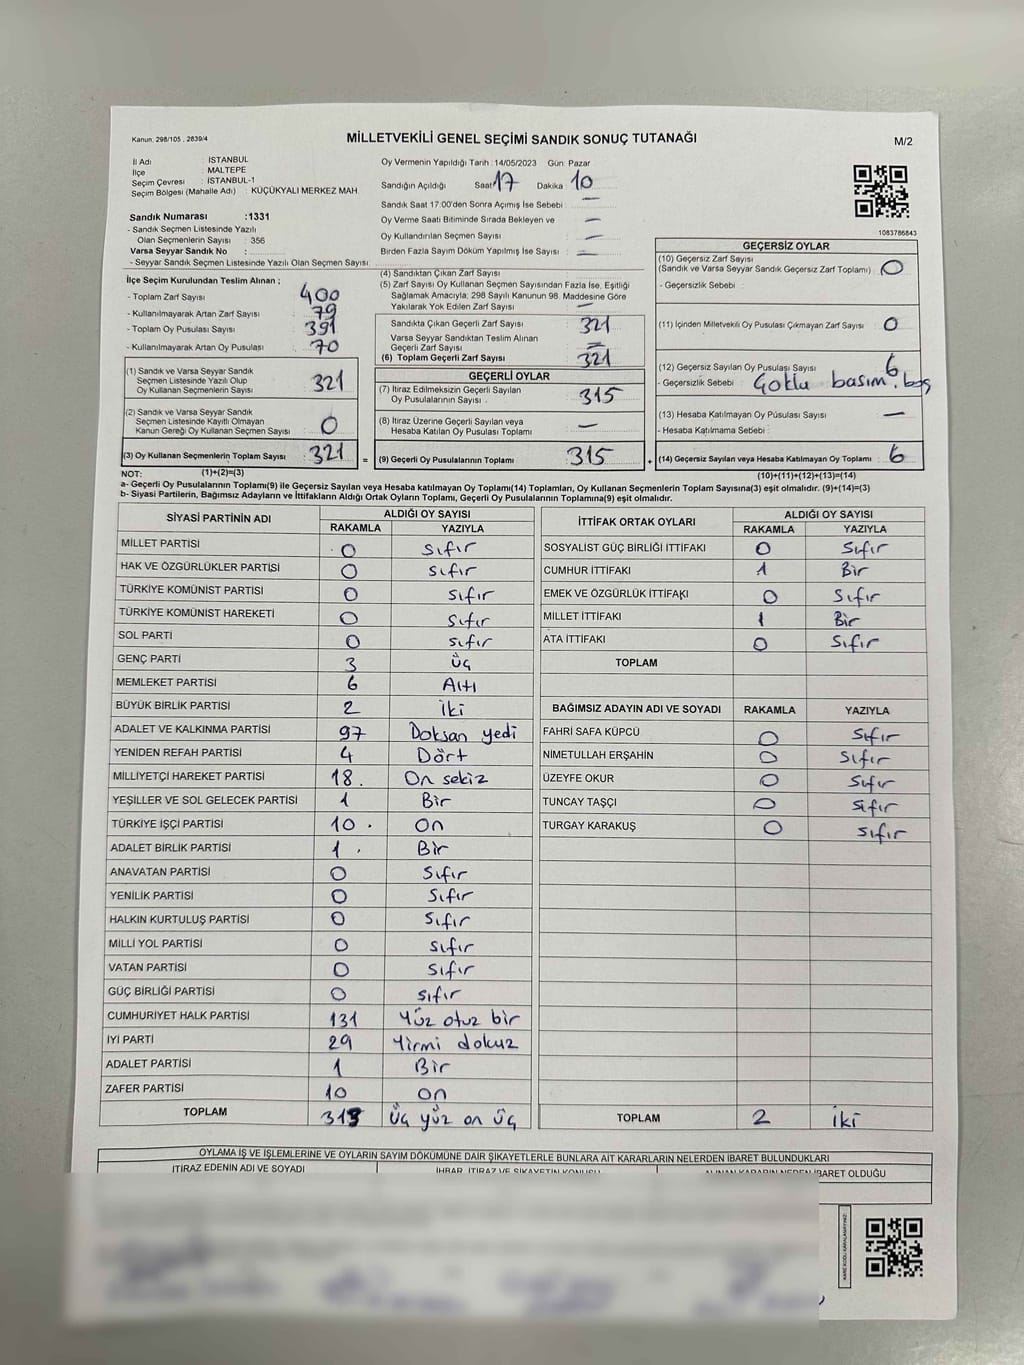 Kanun: 298/105 , 2839/4
MİLLETVEKİLİ GENEL SEÇİMİ SANDIK SONUÇ TUTANAĞI
M/2
İl Adı : İSTANBUL
İlçe : MALTEPE
Seçim Çevresi : İSTANBUL-1
Seçim Bölgesi (Mahalle Adı) : KÜÇÜKYALI MERKEZ MAH.
Sandık Numarası :1331
- Sandık Seçmen Listesinde Yazılı
Olan Seçmenlerin Sayısı : 356
Varsa Seyyar Sandık No :
- Seyyar Sandık Seçmen Listesinde Yazılı Olan Seçmen Sayısı
Oy Vermenin Yapıldığı Tarih : 14/05/2023 Gün: Pazar
Sandığın Açıldığı Saat 17 Dakika 10
Sandık Saat 17:00'den Sonra Açımış İse Sebebi : —
Oy Verme Saati Bitiminde Sırada Bekleyen ve —
Oy Kullandırılan Seçmen Sayısı —
Birden Fazla Sayım Döküm Yapılmış İse Sayısı : —
1083786843
İlçe Seçim Kurulundan Teslim Alınan ;
- Toplam Zarf Sayısı 400
- Kullanılmayarak Artan Zarf Sayısı : 79
- Toplam Oy Pusulası Sayısı 391
- Kullanılmayarak Artan Oy Pusulası 70
(1) Sandık ve Varsa Seyyar Sandık
Seçmen Listesinde Yazılı Olup
Oy Kullanan Seçmenlerin Sayısı 321
(2) Sandık ve Varsa Seyyar Sandık
Seçmen Listesinde Kayıtlı Olmayan
Kanun Gereği Oy Kullanan Seçmen Sayısı 0
(3) Oy Kullanan Seçmenlerin Toplam Sayısı 321 =
(4) Sandıktan Çıkan Zarf Sayısı
(5) Zarf Sayısı Oy Kullanan Seçmen Sayısından Fazla İse, Eşitliği
Sağlamak Amacıyla; 298 Sayılı Kanunun 98. Maddesine Göre
Yakılarak Yok Edilen Zarf Sayısı —
Sandıkta Çıkan Geçerli Zarf Sayısı 321
Varsa Seyyar Sandıktan Teslim Alınan
Geçerli Zarf Sayısı
(6) Toplam Geçerli Zarf Sayısı 321
GEÇERLİ OYLAR
(7) İtiraz Edilmeksizin Geçerli Sayılan
Oy Pusulalarının Sayısı 315
(8) İtiraz Üzerine Geçerli Sayılan veya
Hesaba Katılan Oy Pusulası Toplamı —
(9) Geçerli Oy Pusulalarının Toplamı 315 +
GEÇERSİZ OYLAR
(10) Geçersiz Zarf Sayısı
(Sandık ve Varsa Seyyar Sandık Geçersiz Zarf Toplamı) 0
- Geçersizlik Sebebi :
(11) İçinden Milletvekili Oy Pusulası Çıkmayan Zarf Sayısı 0
(12) Geçersiz Sayılan Oy Pusulası Sayısı 6
- Geçersizlik Sebebi : Çoklu basım, boş
(13) Hesaba Katılmayan Oy Pusulası Sayısı —
- Hesaba Katılmama Sebebi :
(14) Geçersiz Sayılan veya Hesaba Katılmayan Oy Toplamı 6
NOT: (1)+(2)=(3)
(10)+(11)+(12)+(13)=(14)
a- Geçerli Oy Pusulalarının Toplamı(9) ile Geçersiz Sayılan veya Hesaba Katılmayan Oy Toplamı(14) Toplamları, Oy Kullanan Seçmenlerin Toplam Sayısına(3) eşit olmalıdır. (9)+(14)=(3)
b- Siyasi Partilerin, Bağımsız Adayların ve İttifakların Aldığı Ortak Oyların Toplamı, Geçerli Oy Pusulalarının Toplamına(9) eşit olmalıdır.
SİYASİ PARTİNİN ADI ALDIĞI OY SAYISI
RAKAMLA YAZIYLA
MİLLET PARTİSİ 0 Sıfır
HAK VE ÖZGÜRLÜKLER PARTİSİ 0 Sıfır
TÜRKİYE KOMÜNİST PARTİSİ 0 Sıfır
TÜRKİYE KOMÜNİST HAREKETİ 0 Sıfır
SOL PARTİ 0 Sıfır
GENÇ PARTİ 3 üç
MEMLEKET PARTİSİ 6 Altı
BÜYÜK BİRLİK PARTİSİ 2 iki
ADALET VE KALKINMA PARTİSİ 97 Doksan yedi
YENİDEN REFAH PARTİSİ 4 Dört
MİLLİYETÇİ HAREKET PARTİSİ 18. On sekiz
YEŞİLLER VE SOL GELECEK PARTİSİ 1 Bir
TÜRKİYE İŞÇİ PARTİSİ 10 . On
ADALET BİRLİK PARTİSİ 1 . Bir
ANAVATAN PARTİSİ 0 Sıfır
YENİLİK PARTİSİ 0 Sıfır
HALKIN KURTULUŞ PARTİSİ 0 Sıfır
MİLLİ YOL PARTİSİ 0 Sıfır
VATAN PARTİSİ 0 Sıfır
GÜÇ BİRLİĞİ PARTİSİ 0 Sıfır
CUMHURİYET HALK PARTİSİ 131 Yüz otuz bir
İYİ PARTİ 29 Yirmi dokuz
ADALET PARTİSİ 1 Bir
ZAFER PARTİSİ 10 on
TOPLAM 313 üç yüz on üç
İTTİFAK ORTAK OYLARI ALDIĞI OY SAYISI
RAKAMLA YAZIYLA
SOSYALİST GÜÇ BİRLİĞİ İTTİFAKI 0 Sıfır
CUMHUR İTTİFAKI 1 Bir
EMEK VE ÖZGÜRLÜK İTTİFAKI 0 Sıfır
MİLLET İTTİFAKI 1 Bir
ATA İTTİFAKI 0 Sıfır
TOPLAM
BAĞIMSIZ ADAYIN ADI VE SOYADI RAKAMLA YAZIYLA
FAHRİ SAFA KÜPCÜ 0 Sıfır
NİMETULLAH ERŞAHİN 0 Sıfır
ÜZEYFE OKUR 0 Sıfır
TUNCAY TAŞÇI 0 Sıfır
TURGAY KARAKUŞ 0 Sıfır
TOPLAM 2 iki
OYLAMA İŞ VE İŞLEMLERİNE VE OYLARIN SAYIM DÖKÜMÜNE DAİR ŞİKAYETLERLE BUNLARA AİT KARARLARIN NELERDEN İBARET BULUNDUKLARI
İTİRAZ EDENİN ADI VE SOYADI İHBAR, İTİRAZ VE ŞİKAYETİN KONUSU ALINAN KARARIN NEDEN İBARET OLDUĞU